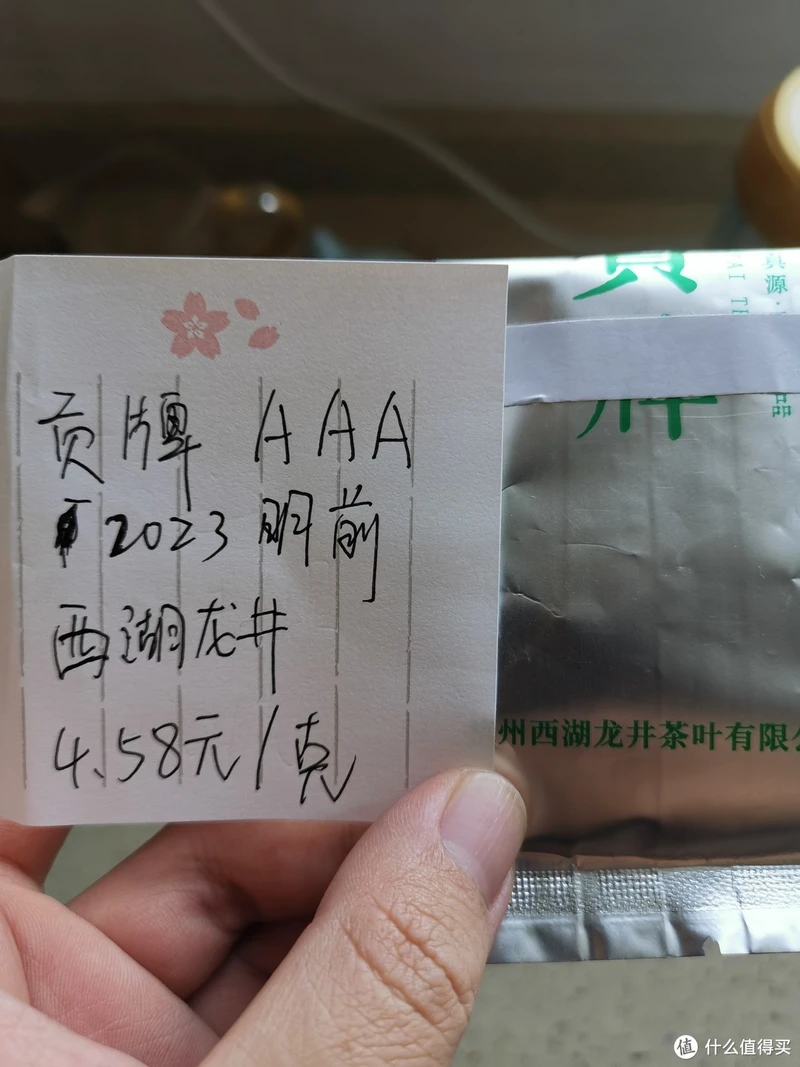 贡牌 AAA
2023 明前
西湖龙井
4.58元/克
贡
牌
真源·
品
州西湖龙井茶叶有限公
值 什么值得买